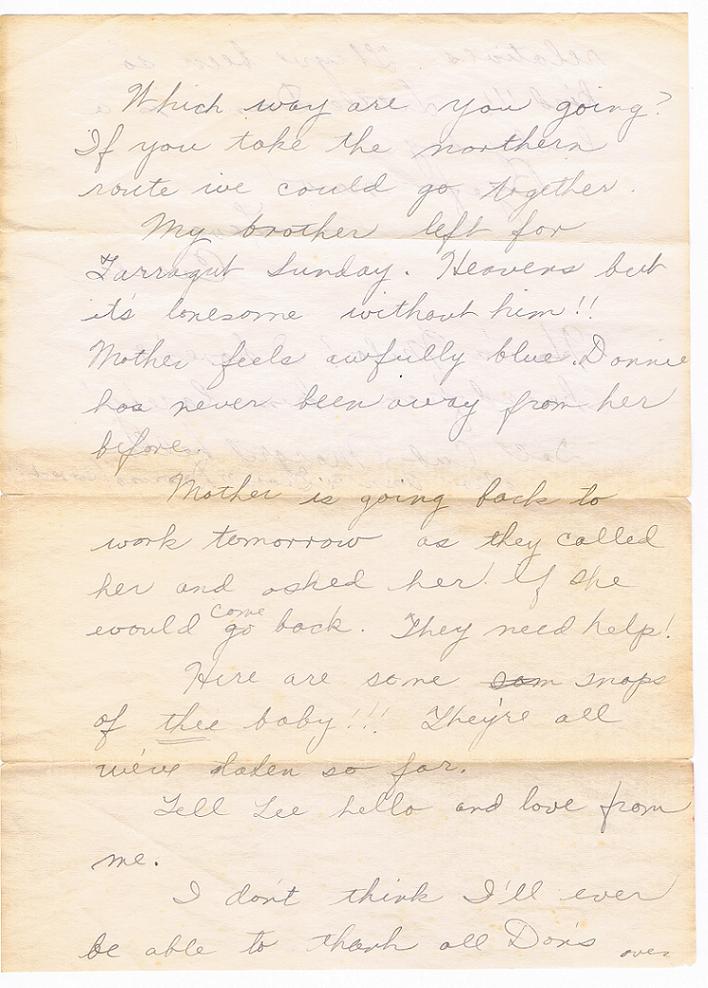 Which way are you going?
If you take the northern
route we could go together.
My brother left for
Farragut Sunday. Heavens but
it's lonesome without him!!
Mother feels awfully blue. Donnie
has never been away from her
before.
Mother is going back to
work tomorrow as they called
her and asked her if she
would come go back. They need help!
Here are some som snaps
of thee baby!!! They're all
we've taken so far.
Tell Lee hello and love from
me.
I don't think I'll ever
be able to thank all Don's
over